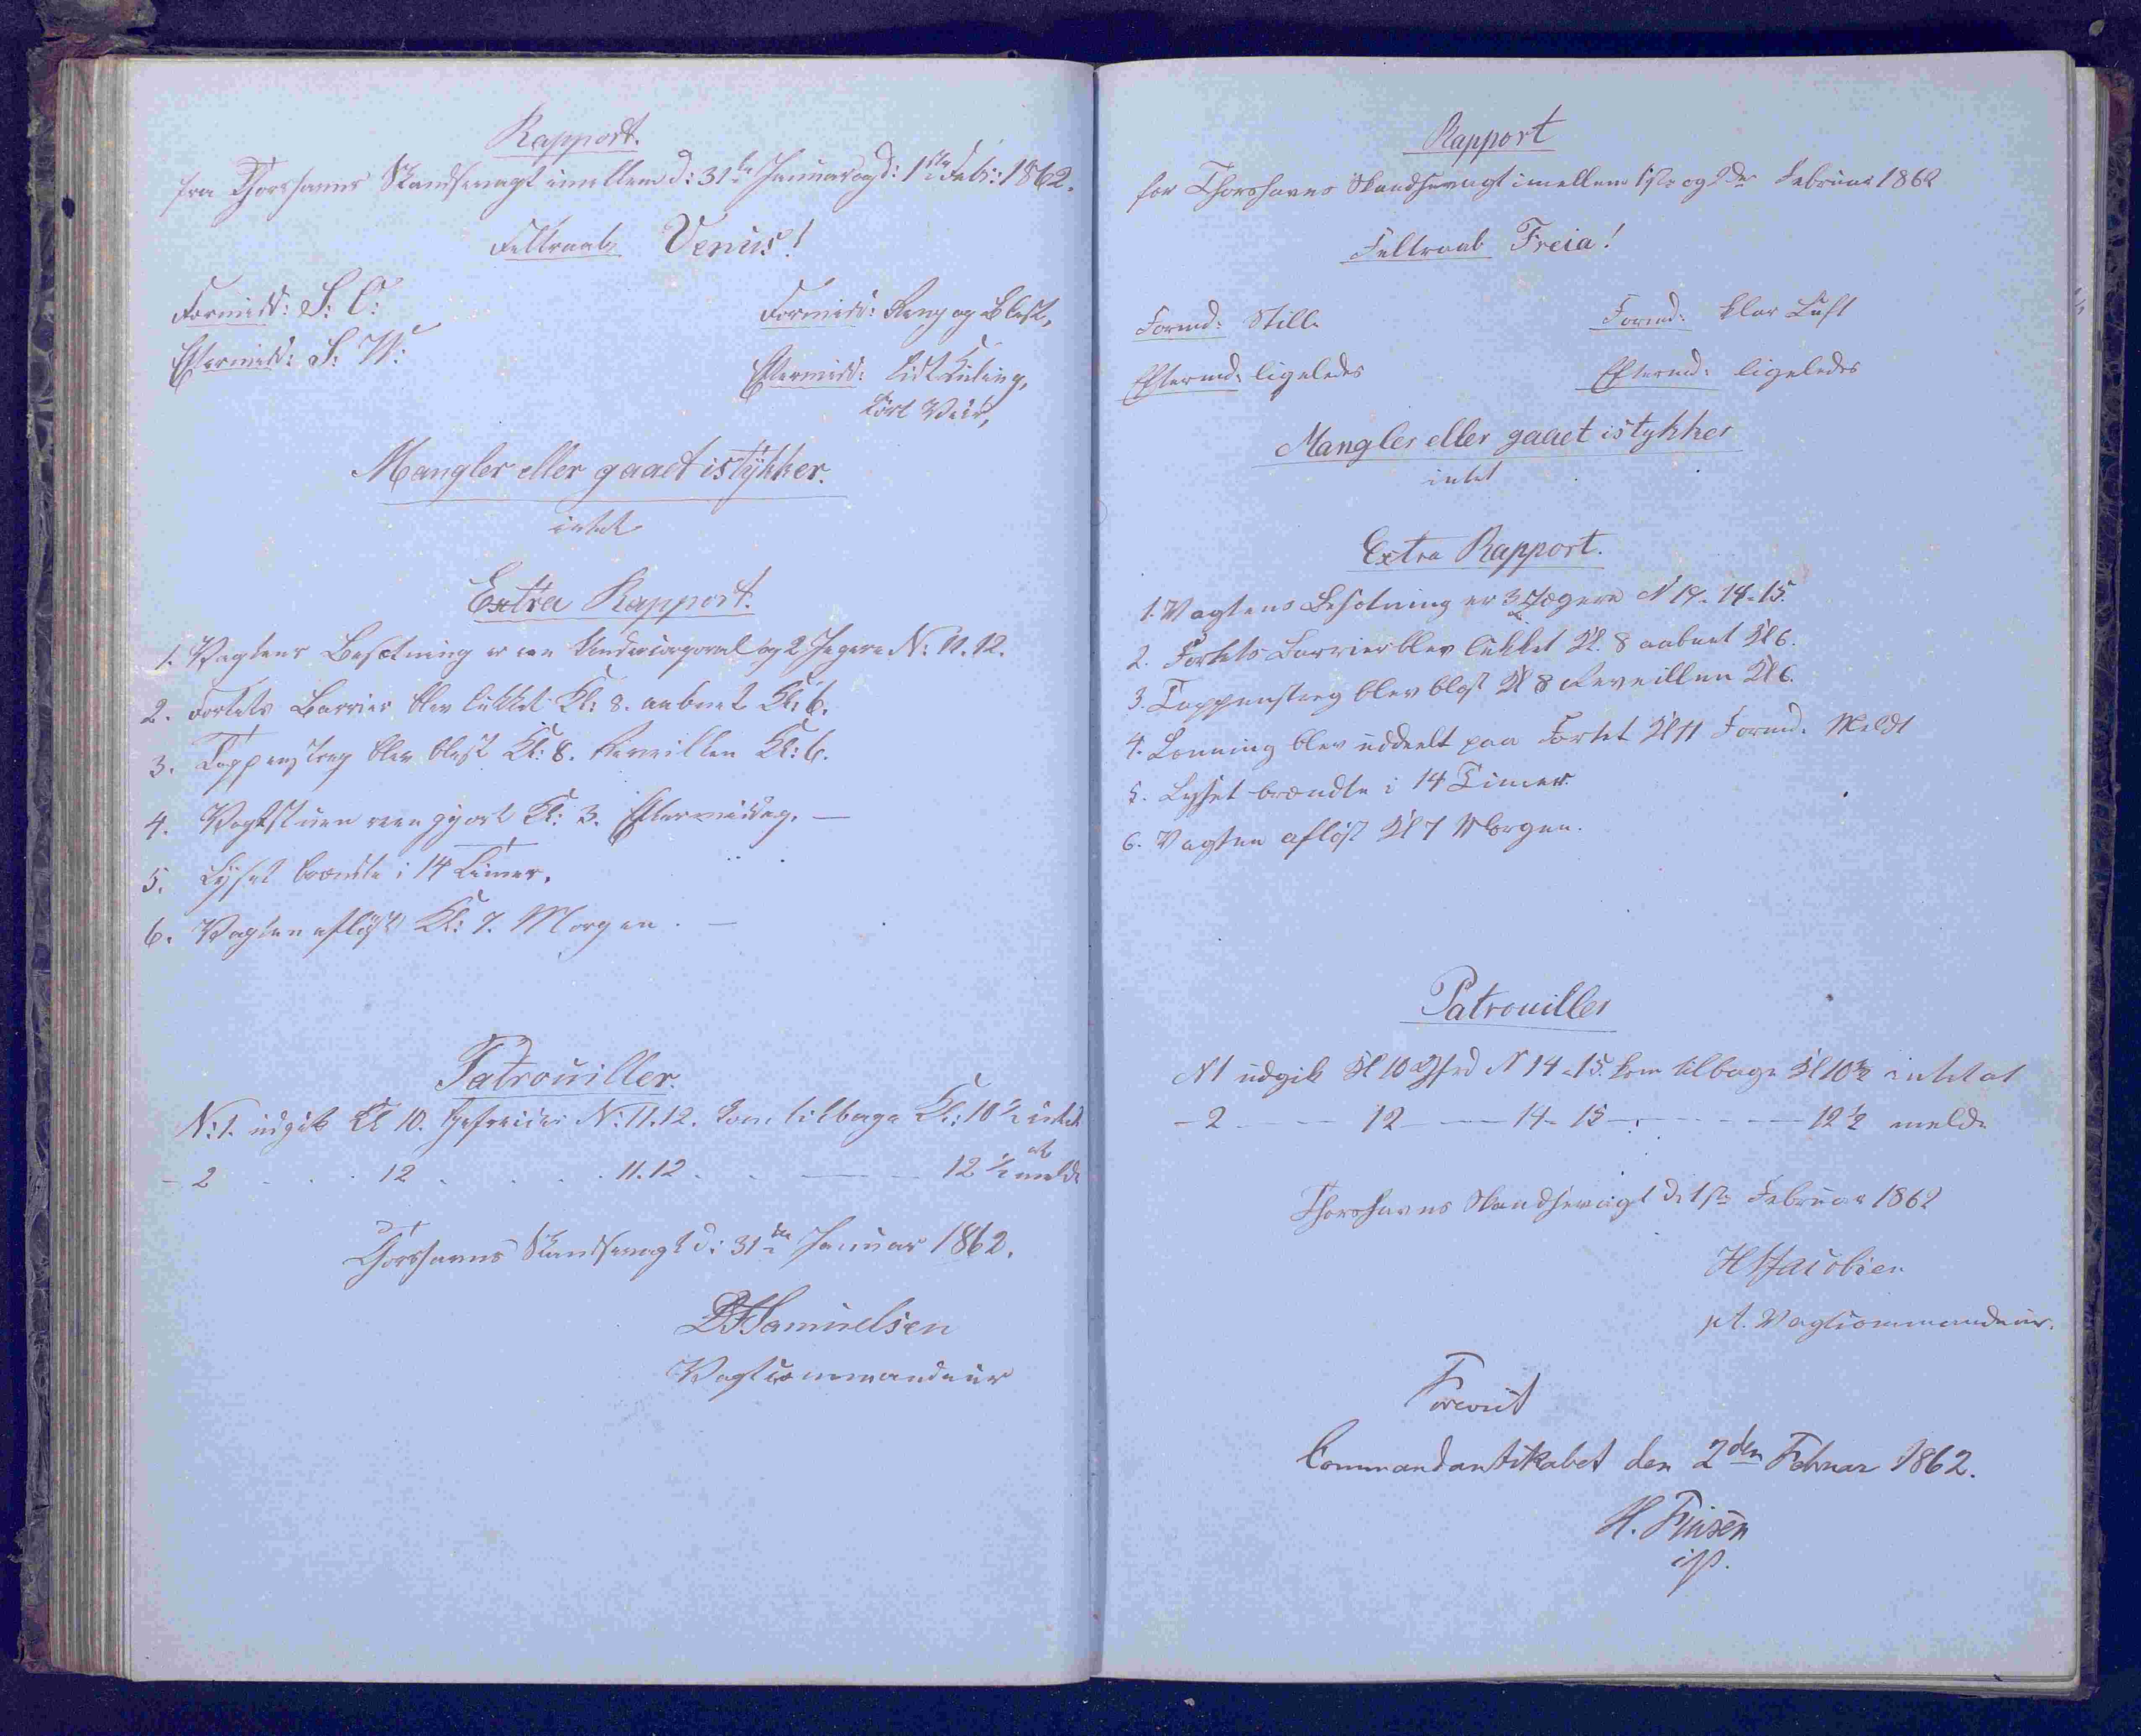 Rapport.
fra Thorshavns Skandsevagt imellem d: 31te Januar og d: 1ste Febr: 1862.
Feltraab Venus!
Formidd: S: O: Formidd: Regn og Blæst,
Eftermidd: S: W: Eftermidd: Lidt Kuling,
tört Veir,
Mangler eller gaaet istÿkker.
intet
Extra Rapport.
1. Vagtens Besætning er een Undercorporal og 2 Jægere N: 11. 12.
2. Fortets Barrier blev lukket Kl: 8. aabnet Kl: 6.
3. Tappenstreg blev blæst Kl: 8. Reveillen Kl: 6.
4. Vagtstuen reengjort Kl: 3. Eftermiddag. —
5. Lyset brændte i 14 Timer.
6. Vagten aflöst Kl: 7. Morgen. —
Patrouiller.
N: 1. udgik Kl 10. Gefreider N: 11. 12. kom tilbage Kl: 10 ½ intet
- 2 . . . 12 . . . . 11. 12 . . — - 12 ½ at melde
Thorshavns Skandsevagt d: 31te Januar 1862.
Samuelsen
Vagtcommandeur
Rapport
for Thorshavns Skandsevagt imellem 1ste og 2den Februar 1862
Feltraab Freia!
Formd: Stille Formd: klar Luft
Eftermd: ligeledes Eftermd: ligeledes
Mangler eller gaaet istykker
intet
Extra Rapport.
1. Vagtens Besætning er 3 Jægere N 19. 14. 15.
2. Fortets Barrier blev lukket Kl. 8 aabnet Kl 6.
3. Tappenstreg blev blæst Kl 8 Reveillen Kl 6.
4. Lønning blev uddeelt paa Fortet Kl 11 Formd. Meldt
5. Lyset brændte i 14 Timer.
6. Vagten aflöst Kl 7 Morgen.
Patrouiller
N 1 udgik Kl 10 Gfrd N 14 - 15. kom tilbage Kl 10½ intet at
- 2 - - - - 12 - - - 14 - 15 - - - - - 12 ½ melde
Thorshavns Skandsevagt d 1ste Februar 1862
Jacobsen
pt. Vagtcommandeur.
Foreviist
Commandantskabet den 2den Februar 1862.
H. Finsen